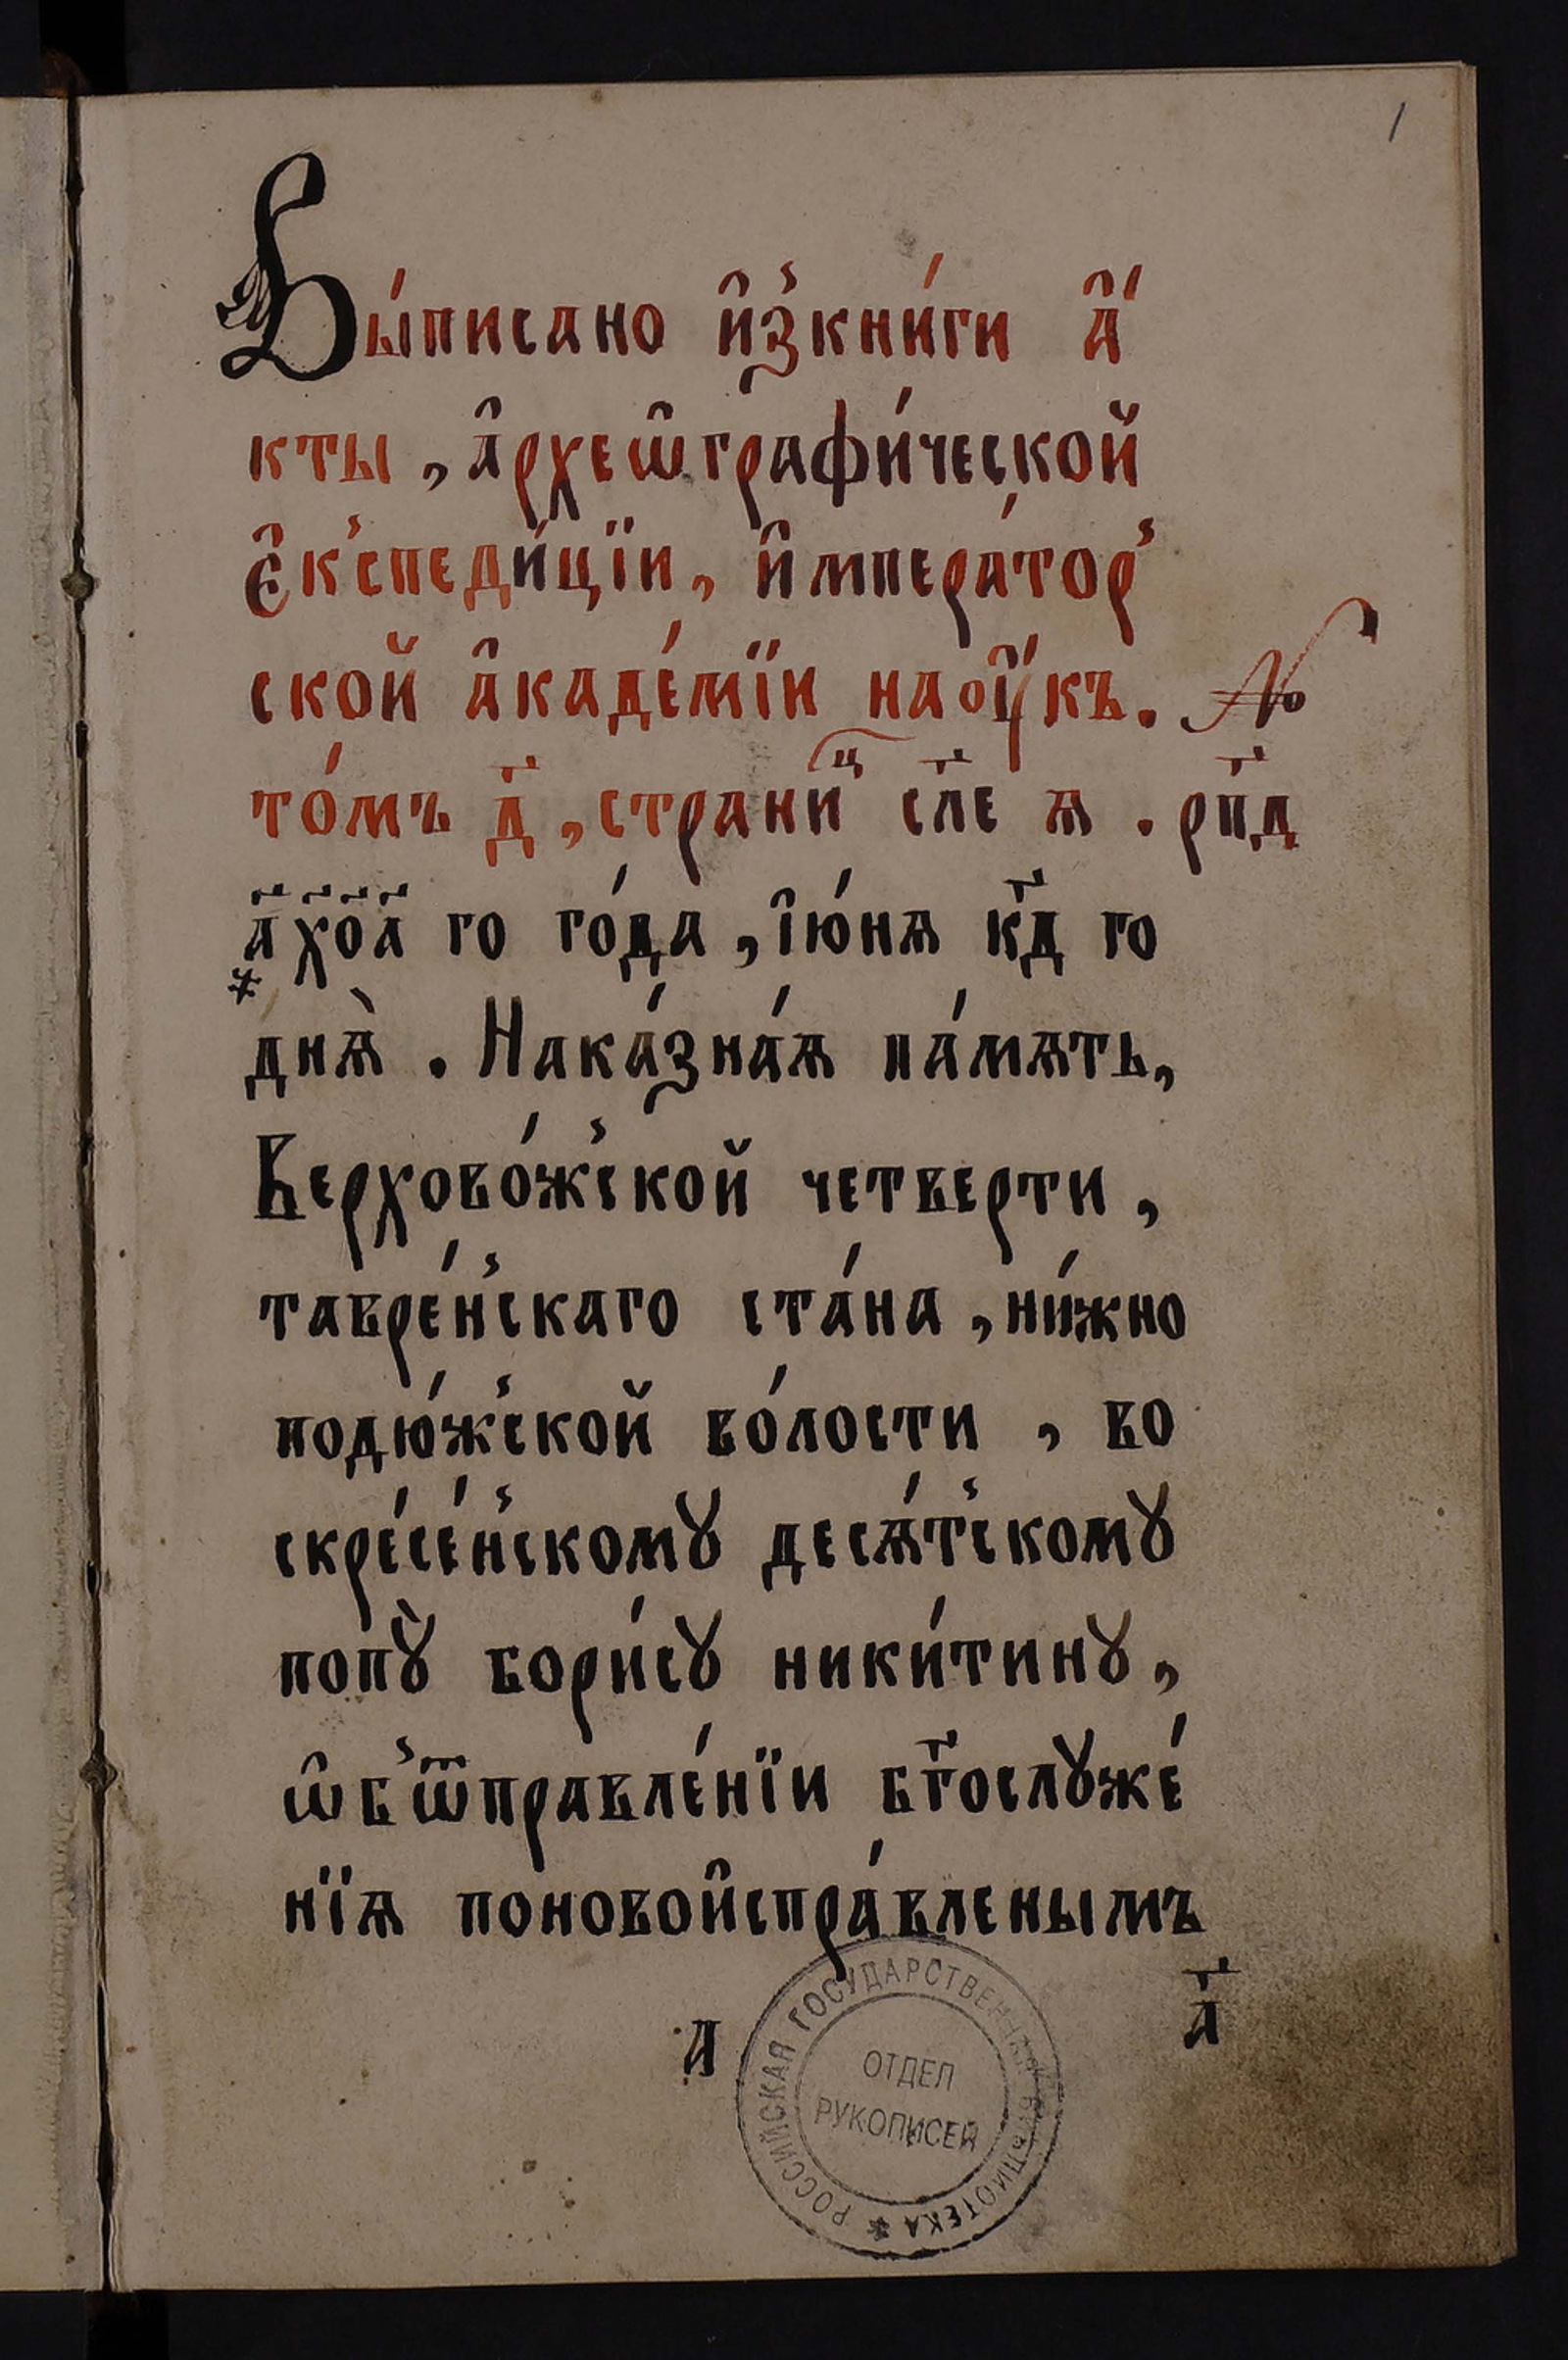 1
Вы́писано и҆з̾кни́ги а҆́
кты , а҆рхеѡ҆графи́ческой
є҆к̾спеди́цїи, и҆мпера́тор̾
ской а҆каде́мїи наоу҆́къ. №
то́мъ д҃ , страни́ⷰ сл҃е ѧ . рп҃д
а҃х҃о҃а҃ го го́да , і҆ю́нѧ к҃д го
*
днѧ̀ . Нака́зна́ѧ па́мѧть,
Верхово́ж̾ской четверти ,
тавре́н̾скаго ста́на , ни́жно
подю́ж̾ской во́лости , во
скре́се́н̾скому десѧ́т̾скому
попꙋ̀ бори́сꙋ ники́тинꙋ,
ѡ҆б̾ѿправле́нїи бг҃ослꙋже́
нїѧ поновои҆спра́вленымъ
а҃
А
РОССИЙСКАЯ ГОСУДАРСТВЕННАЯ БИБЛИОТЕКА *
ОТДЕЛ
РУКОПИСЕЙ